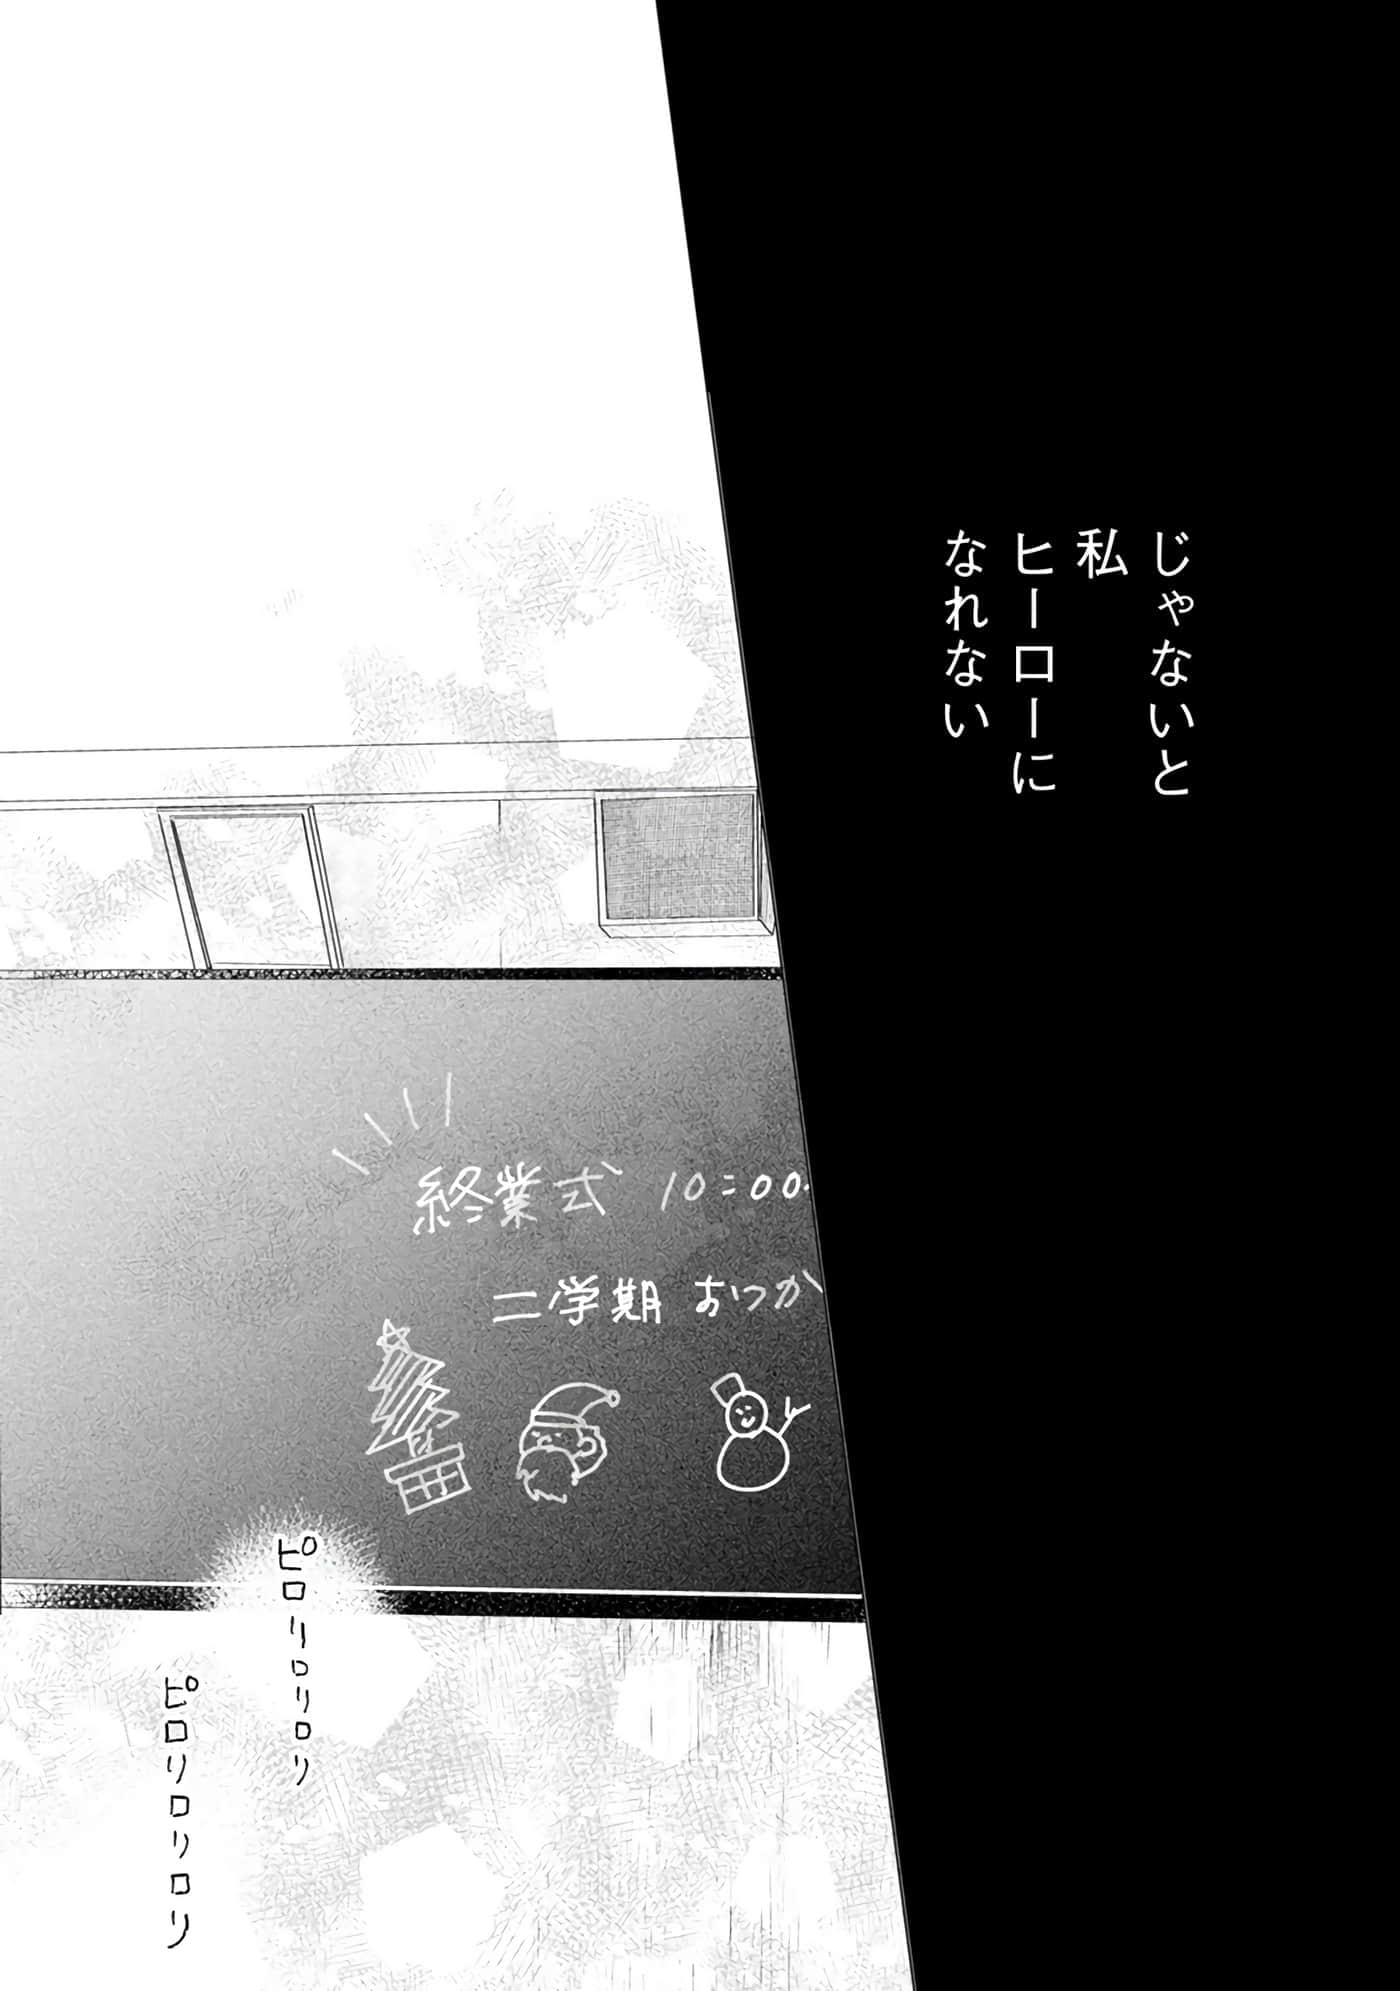 じゃないと
私
ヒーローに
なれない
終業式 10:00
二学期 おつか
ピロリロリロリ
ピロリロリロリ